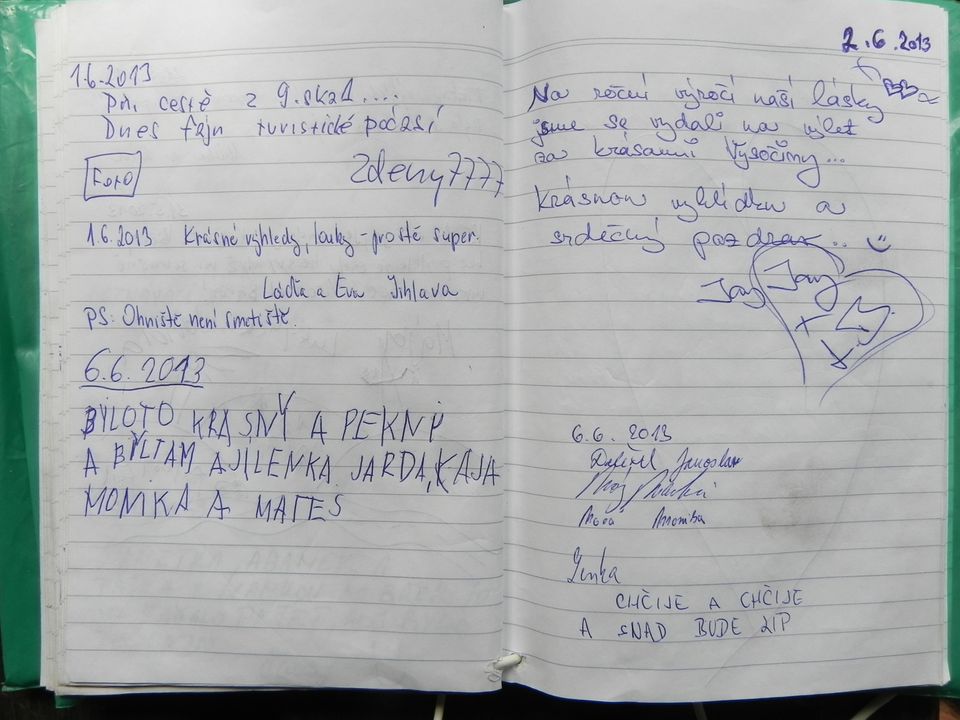 1.6.2013
Při cestě z 9.skal....
Dnes fajn turistické počasí
Foto
Zdeny7777
1.6.2013 Krásné výhledy, louky - prostě super.
Láďa a Eva Jihlava
PS: Ohniště není smetiště.
6.6. 2013
BYLOTO KRASNÝ A PEKNÝ
A BYLTAM AJILENKA JARDA, KAJA
MONIKA A MATES
2.6.2013
Na roční výročí naší lásky
jsme se vydali na výlet
za krásami Vysočiny...
Krásnou vyhlídku a
srdečný pozdrav..
6.6. 2013
Jaroslav
Monika
Lenka
CHČIJE A CHČIJE
A SNAD BUDE LÍP